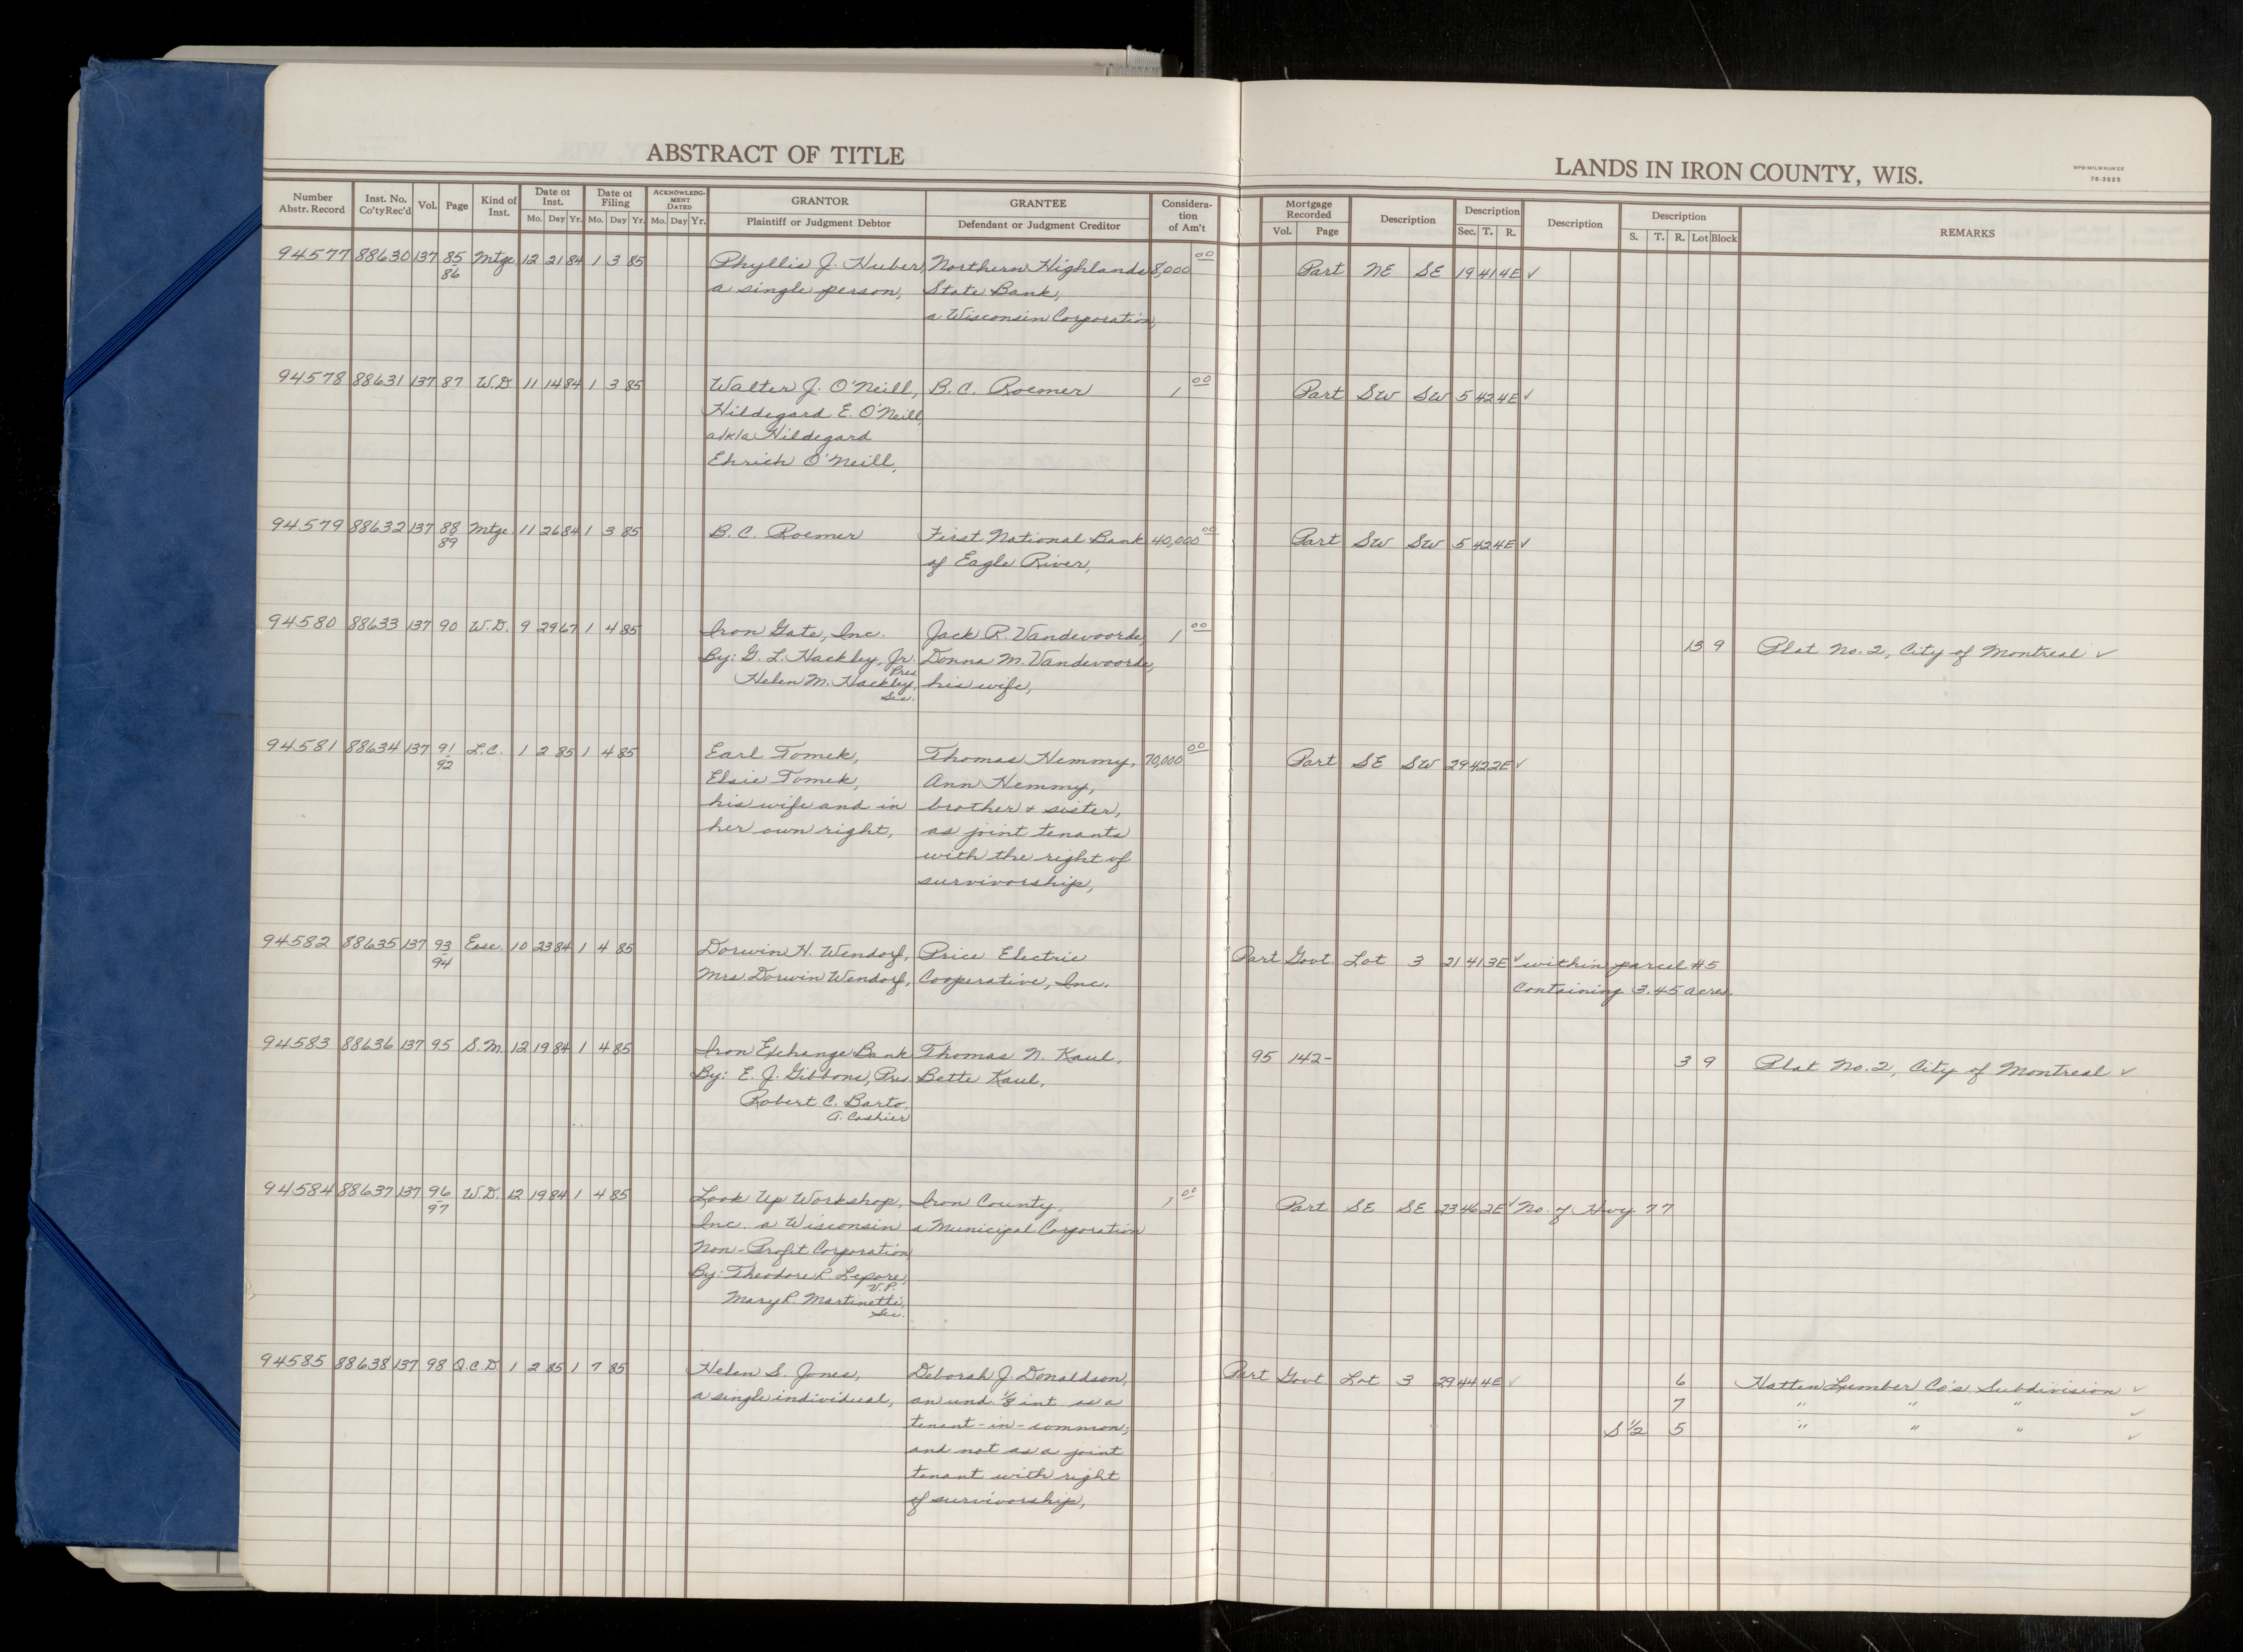 ABSTRACT OF TITLE
LANDS IN IRON COUNTY, WIS.
WPB-MILWAUKEE
78-3525
Number Abstr. Record Inst. No. Co'ty Rec'd Vol. Page Kind of Inst. Date of Inst. Mo. Day Yr. Date of Filing Mo. Day Yr. ACKNOWLEDGMENT DATED Mo. Day Yr. GRANTOR Plaintiff or Judgment Debtor GRANTEE Defendant or Judgment Creditor Consideration of Am't Mortgage Recorded Vol. Page Description Description Sec. T. R. Description Description S. T. R. Lot Block REMARKS
94577 88630 137 85 Mtge 12 21 84 1 3 85 Phyllis J. Huber, Northern Highlands 8,000 00 Part NE SE 19 41 4E ✓
86 a single person, State Bank,
a Wisconsin Corporation,
94578 88631 137 87 W.D. 11 14 84 1 3 85 Walter J. O'Neill, B.C. Roemer 1 00 Part SW SW 5 42 4E ✓
Hildegard E. O'Neill,
a/k/a Hildegard
Ehrich O'Neill,
94579 88632 137 88 Mtge. 11 26 84 1 3 85 B.C. Roemer First National Bank 40,000 00 Part SW SW 5 42 4E ✓
89 of Eagle River,
94580 88633 137 90 W.D. 9 29 67 1 4 85 Iron Gate, Inc. Jack R. Vandevoorde, 1 00 13 9 Plat No. 2, City of Montreal ✓
By: G. L. Hackley, Jr. Donna M. Vandevoorde,
Pres.
Helen M. Hackley, his wife,
Sec.
94581 88634 137 91 L.C. 1 2 85 1 4 85 Earl Tomek, Thomas Hemmy, 70,000 00 Part SE SW 29 42 2E ✓
92 Elsie Tomek, Ann Hemmy,
his wife and in brother & sister,
her own right, as joint tenants
with the right of
survivorship,
94582 88635 137 93 Ease. 10 23 84 1 4 85 Dorwin H. Wendorf, Price Electric Part Govt. Lot 3 21 41 3E ✓ within parcel #5
94 Mrs. Dorwin Wendorf, Cooperative, Inc. Containing 3.45 acres
94583 88636 137 95 S.M. 12 19 84 1 4 85 Iron Exchange Bank Thomas N. Kaul, 95 142- 3 9 Plat No. 2, City of Montreal ✓
By: E. J. Gibbons, Pres. Bette Kaul,
Robert C. Barto,
A. Cashier
94584 88637 137 96 W.D. 12 19 84 1 4 85 Look Up Workshop, Iron County, 1 00 Part SE SE 23 46 2E ✓ No. of Hwy 77
97 Inc. a Wisconsin a Municipal Corporation
Non-Profit Corporation
By: Theodore P. Lepore,
V.P.
Mary P. Martinetti,
Sec.
94585 88638 137 98 Q.C.D. 1 2 85 1 7 85 Helen S. Jones, Deborah J. Donaldson, Part Govt Lot 3 29 44 4E ✓ 6 Hatten Lumber Co's. Subdivision ✓
a single individual, an und. 1/8 int as a 7 " " " ✓
tenant-in-common, S 1/2 5 " " " ✓
and not as a joint
tenant with right
of survivorship,